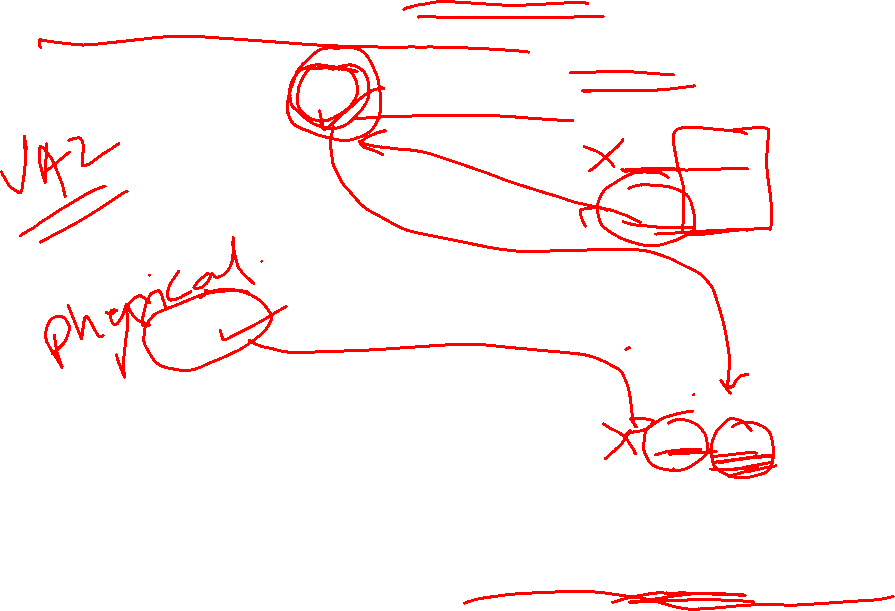 VA2
physical.